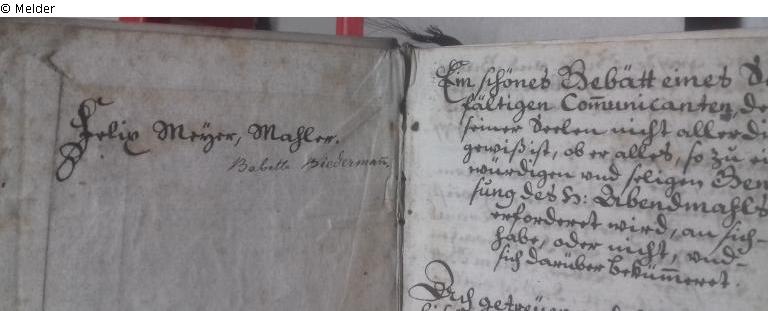 © Melder
Felix Meyer, Mahler.
Babette Biedermañ.
Ein schönes Gebätt eines
fältigen Com̄unicanten, de
seiner Seelen nicht allerdi
gewiß ist, ob er alles, so zu ei
würdigen vnd seligen Gen
sung des H: Abendmahls
erforderet wird, an sich
habe, oder nicht, vnd
sich darüber beküm̄eret.
Ach getreüer